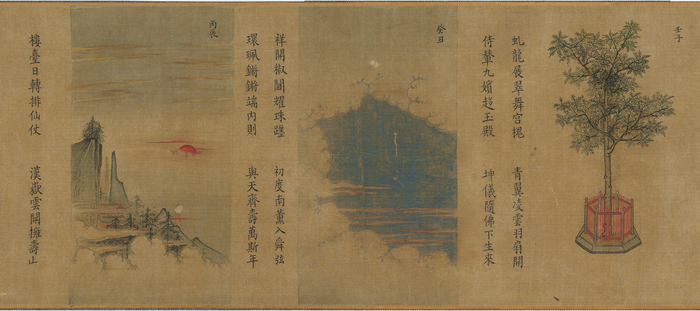 壬子
虬龍展翠舞宮槐　青翼凌雲羽扇開
侍輦九嬪趍玉殿　坤儀隨佛下生來
癸丑
祥開椒閫耀珠躔　初度南薰入舜弦
環珮鏘鏘端內則　與天齊壽萬斯年
丙辰
樓臺日轉排仙仗　漢嶽雲開擁壽山